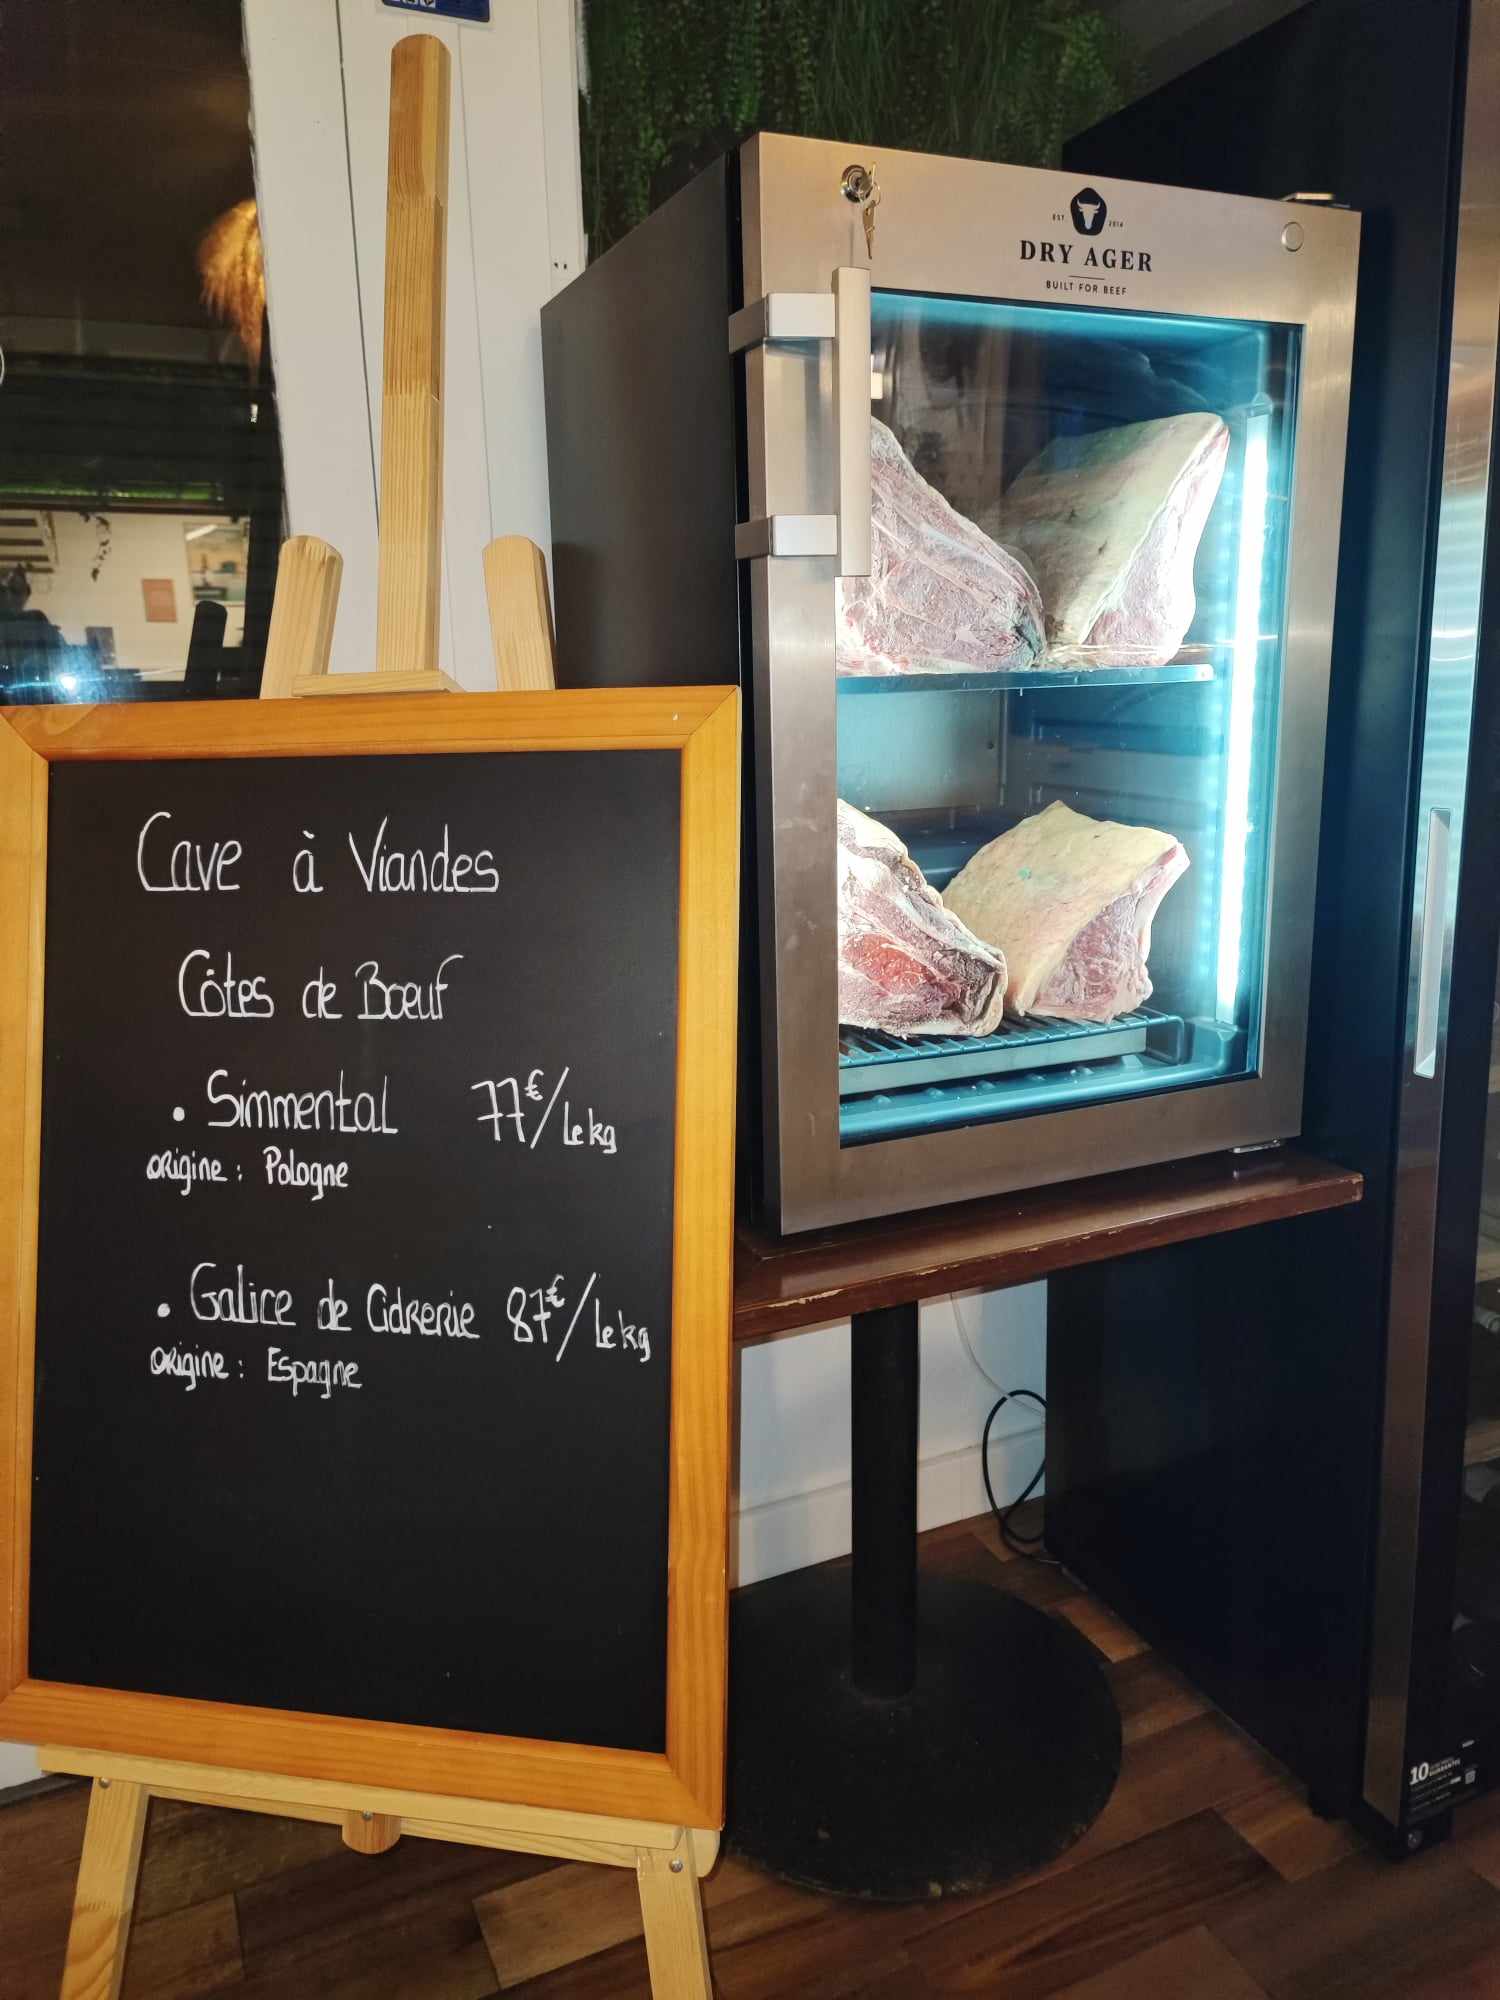 Cave à Viandes
Côtes de Boeuf
• Simmental 77€/Le kg
origine : Pologne
• Galice de Cidrerie 87€/Le kg
origine : Espagne
EST 2014
DRY AGER
BUILT FOR BEEF
10